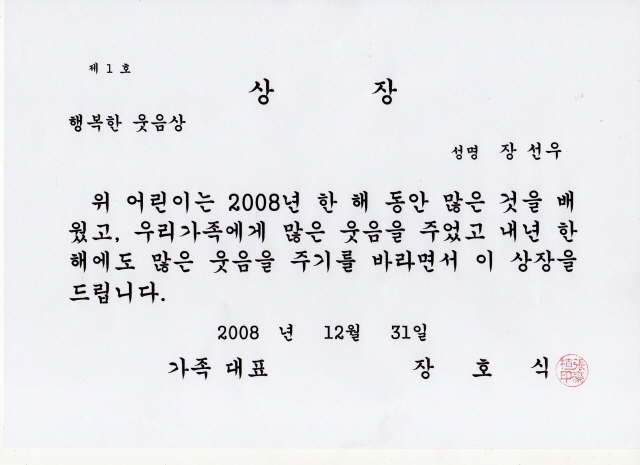 제 1 호
상 장
행복한 웃음상
성명 장 선우
위 어린이는 2008년 한 해 동안 많은 것을 배
웠고, 우리가족에게 많은 웃음을 주었고 내년 한
해에도 많은 웃음을 주기를 바라면서 이 상장을
드립니다.
2008 년 12월 31일
가족 대표 장 호 식